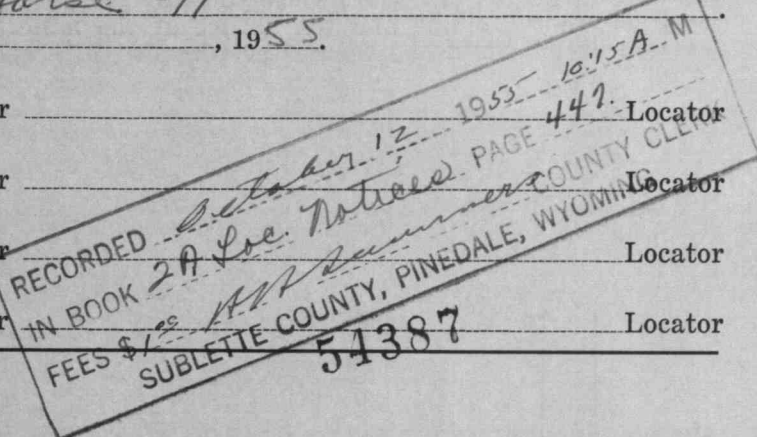 , 1955.
r Locator
r Locator
r Locator
r Locator
RECORDED October 12 1955 10:15 A. M
IN BOOK 2A Loc. Notices PAGE 447.
FEES $1.00 COUNTY CLERK
SUBLETTE COUNTY, PINEDALE, WYOMING
54387